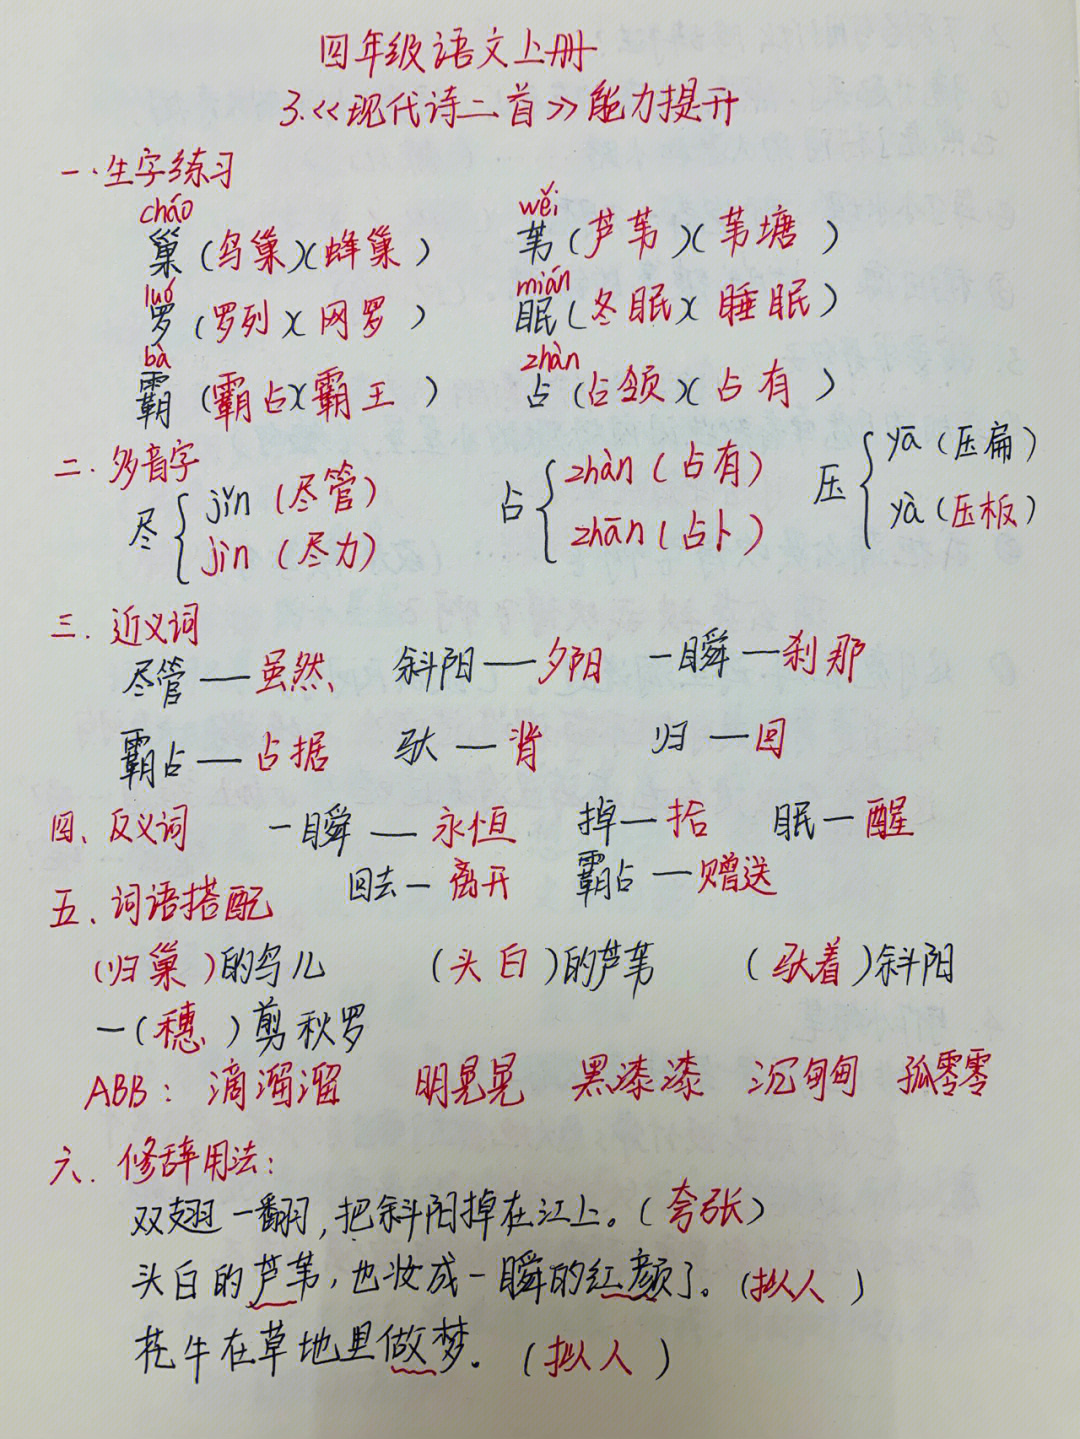 四年级语文上册
3.《现代诗二首》能力提升
一.生字练习
cháo wěi
巢(鸟巢)(蜂巢) 苇(芦苇)(苇塘)
luó mián
罗(罗列)(网罗) 眠(冬眠)(睡眠)
bà zhàn
霸(霸占)(霸王) 占(占领)(占有)
二.多音字
尽{jǐn(尽管) 占{zhàn(占有) 压{yā(压扁)
jìn(尽力) zhān(占卜) yà(压板)
三.近义词
尽管—虽然 斜阳—夕阳 一瞬—刹那
霸占—占据 驮—背 归—回
四、反义词 一瞬—永恒 掉—拾 眠—醒
回去—离开 霸占—赠送
五、词语搭配
(归巢)的鸟儿 (头白)的芦苇 (驮着)斜阳
一(穗)剪秋罗
ABB:滴溜溜 明晃晃 黑漆漆 沉甸甸 孤零零
六.修辞用法:
双翅一翻,把斜阳掉在江上。(夸张)
头白的芦苇,也妆成一瞬的红颜了。(拟人)
花牛在草地里做梦.(拟人)